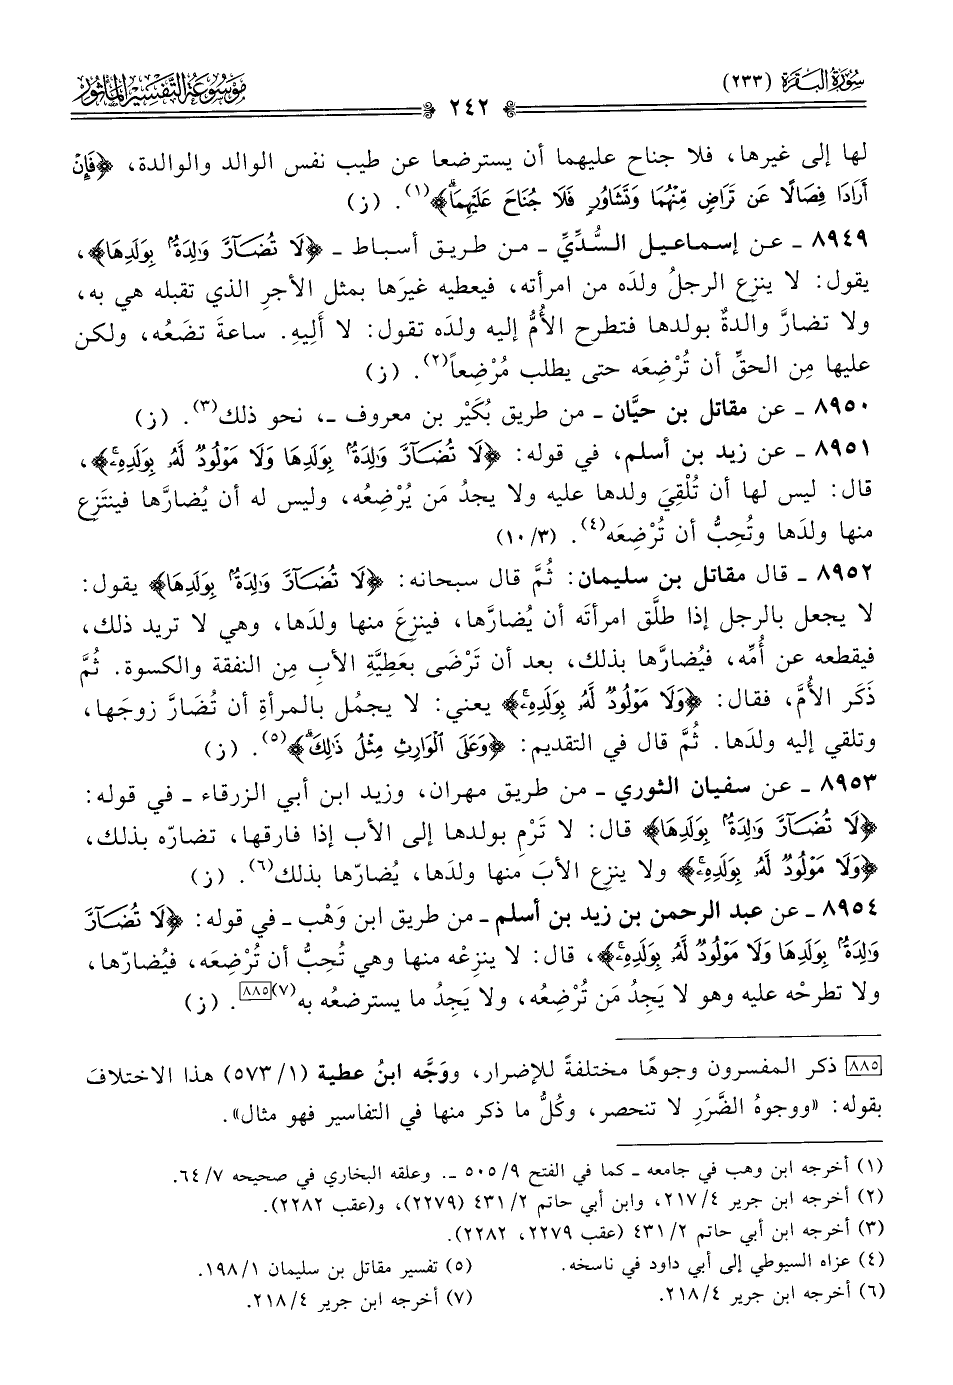 سُورَةُ البَقَرَة (٢٣٣)
٢٤٢
مَوْسُوعَةُ التَّفْسِيرِ المَأْثُورِ
لها إلى غيرها، فلا جناح عليهما أن يسترضعا عن طيب نفس الوالد والوالدة، ﴿فَإِنْ
أَرَادَا فِصَالًا عَن تَرَاضٍ مِّنْهُمَا وَتَشَاوُرٍ فَلَا جُنَاحَ عَلَيْهِمَاۗ﴾(١). (ز)
٨٩٤٩ ـ عن إسماعيل السُّدِّيِّ ـ من طريق أسباط ـ ﴿لَا تُضَآرَّ وَٰلِدَةُۢ بِوَلَدِهَا﴾،
يقول: لا ينزِع الرجلُ ولدَه من امرأته، فيعطيه غيرَها بمثل الأجرِ الذي تقبله هي به،
ولا تضارَّ والدةٌ بولدها فتطرح الأُمُّ إليه ولدَه تقول: لا أَلِيهِ. ساعةَ تضَعُه، ولكن
عليها مِن الحقِّ أن تُرْضِعَه حتى يطلب مُرْضِعاً(٢). (ز)
٨٩٥٠ ـ عن مقاتل بن حيَّان ـ من طريق بُكَيْر بن معروف ـ، نحو ذلك(٣). (ز)
٨٩٥١ ـ عن زيد بن أسلم، في قوله: ﴿لَا تُضَآرَّ وَٰلِدَةُۢ بِوَلَدِهَا وَلَا مَوْلُودٌ لَّهُۥ بِوَلَدِهِۦۚ﴾،
قال: ليس لها أن تُلْقِيَ ولدها عليه ولا يجدُ مَن يُرْضِعُه، وليس له أن يُضارَّها فينتَزِع
منها ولدَها وتُحِبُّ أن تُرْضِعَه(٤). (١٠/٣)
٨٩٥٢ ـ قال مقاتل بن سليمان: ثُمَّ قال سبحانه: ﴿لَا تُضَآرَّ وَٰلِدَةُۢ بِوَلَدِهَا﴾ يقول:
لا يجعل بالرجل إذا طلَّق امرأتَه أن يُضارَّها، فينزِعَ منها ولدَها، وهي لا تريد ذلك،
فيقطعه عن أُمِّه، فيُضارَّها بذلك، بعد أن تَرْضَى بعَطِيَّةِ الأبِ مِن النفقة والكسوة. ثُمَّ
ذَكَر الأُمَّ، فقال: ﴿وَلَا مَوْلُودٌ لَّهُۥ بِوَلَدِهِۦۚ﴾ يعني: لا يجمُل بالمرأةِ أن تُضَارَّ زوجَها،
وتلقي إليه ولدَها. ثُمَّ قال في التقديم: ﴿وَعَلَى ٱلْوَارِثِ مِثْلُ ذَٰلِكَۗ﴾(٥). (ز)
٨٩٥٣ ـ عن سفيان الثوري ـ من طريق مهران، وزيد ابن أبي الزرقاء ـ في قوله:
﴿لَا تُضَآرَّ وَٰلِدَةُۢ بِوَلَدِهَا﴾ قال: لا تَرْمِ بولدها إلى الأب إذا فارقها، تضارّه بذلك،
﴿وَلَا مَوْلُودٌ لَّهُۥ بِوَلَدِهِۦۚ﴾ ولا ينزِع الأبَ منها ولدَها، يُضارّها بذلك(٦). (ز)
٨٩٥٤ ـ عن عبد الرحمن بن زيد بن أسلم ـ من طريق ابن وَهْب ـ في قوله: ﴿لَا تُضَآرَّ
وَٰلِدَةُۢ بِوَلَدِهَا وَلَا مَوْلُودٌ لَّهُۥ بِوَلَدِهِۦۚ﴾، قال: لا ينزِعْه منها وهي تُحِبُّ أن تُرْضِعَه، فيُضارّها،
ولا تطرحْه عليه وهو لا يَجِدُ مَن تُرْضِعُه، ولا يَجِدُ ما يسترضعُه به(٧)[٨٨٥]. (ز)
[٨٨٥] ذكر المفسرون وجوهًا مختلفةً للإضرار، ووَجَّه ابنُ عطية (١/ ٥٧٣) هذا الاختلافَ
بقوله: «ووجوهُ الضَّرَرِ لا تنحصر، وكُلُّ ما ذكر منها في التفاسير فهو مثال».
(١) أخرجه ابن وهب في جامعه ـ كما في الفتح ٩/ ٥٠٥ ـ. وعلقه البخاري في صحيحه ٧/ ٦٤.
(٢) أخرجه ابن جرير ٤/ ٢١٧، وابن أبي حاتم ٢/ ٤٣١ (٢٢٧٩)، و(عقب ٢٢٨٢).
(٣) أخرجه ابن أبي حاتم ٢/ ٤٣١ (عقب ٢٢٧٩، ٢٢٨٢).
(٤) عزاه السيوطي إلى أبي داود في ناسخه.
(٥) تفسير مقاتل بن سليمان ١/ ١٩٨.
(٦) أخرجه ابن جرير ٤/ ٢١٨.
(٧) أخرجه ابن جرير ٤/ ٢١٨.